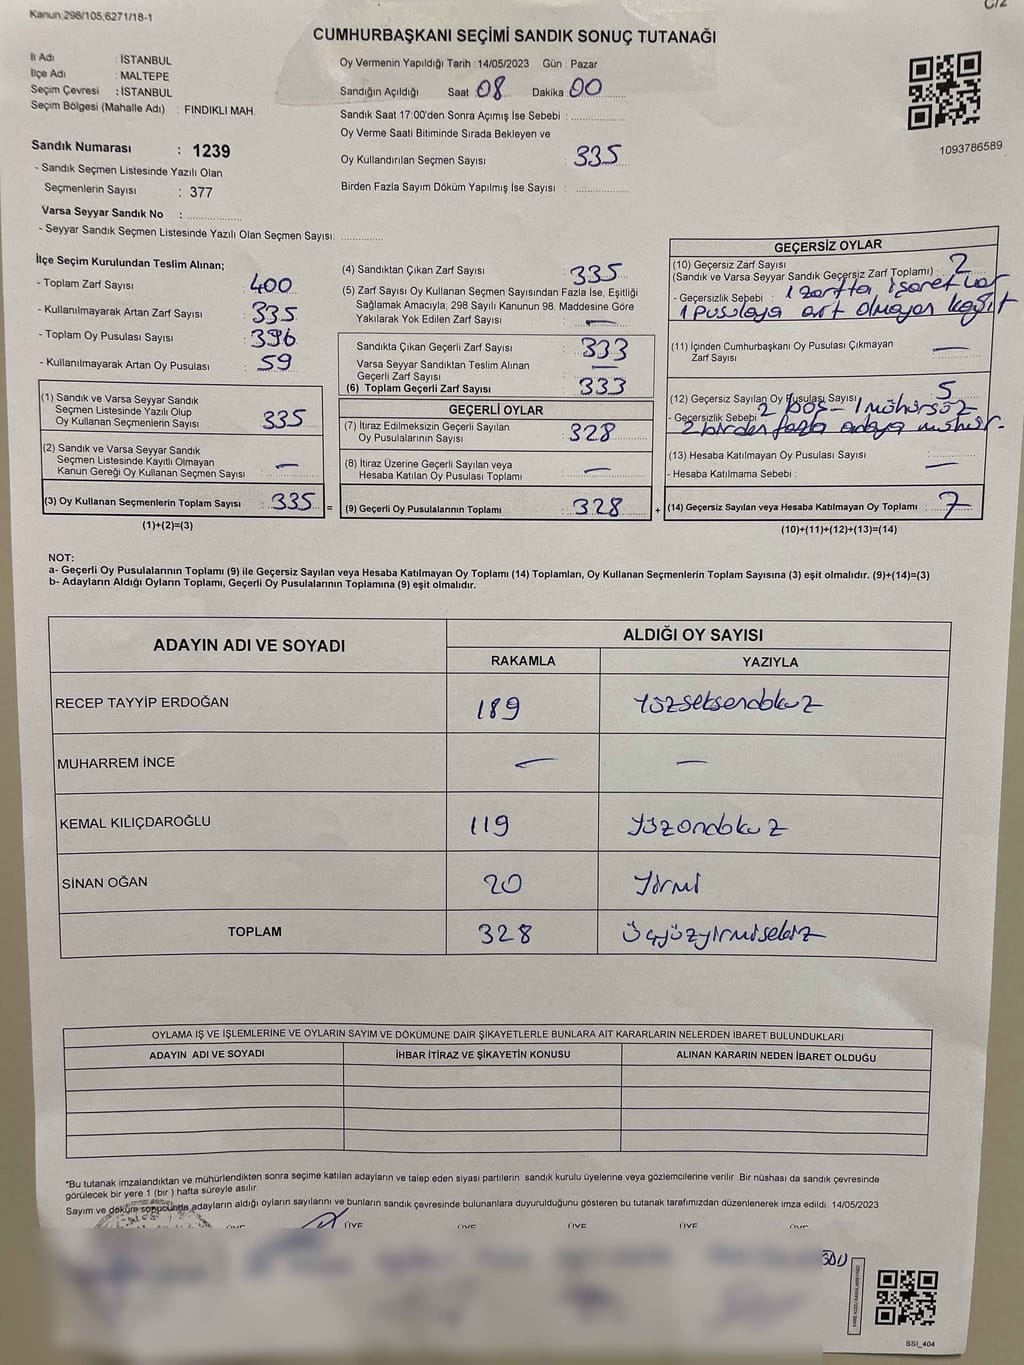 Kanun:298/105;6271/18-1
C/2
CUMHURBAŞKANI SEÇİMİ SANDIK SONUÇ TUTANAĞI
İl Adı : İSTANBUL
İlçe Adı : MALTEPE
Seçim Çevresi : İSTANBUL
Seçim Bölgesi (Mahalle Adı) : FINDIKLI MAH.
Sandık Numarası : 1239
- Sandık Seçmen Listesinde Yazılı Olan
Seçmenlerin Sayısı : 377
Varsa Seyyar Sandık No :
- Seyyar Sandık Seçmen Listesinde Yazılı Olan Seçmen Sayısı:
Oy Vermenin Yapıldığı Tarih : 14/05/2023 Gün : Pazar
Sandığın Açıldığı Saat 08 Dakika 00
Sandık Saat 17:00'den Sonra Açımış İse Sebebi :
Oy Verme Saati Bitiminde Sırada Bekleyen ve
Oy Kullandırılan Seçmen Sayısı : 335
Birden Fazla Sayım Döküm Yapılmış İse Sayısı :
1093786589
İlçe Seçim Kurulundan Teslim Alınan;
- Toplam Zarf Sayısı : 400
- Kullanılmayarak Artan Zarf Sayısı : 335
- Toplam Oy Pusulası Sayısı : 396
- Kullanılmayarak Artan Oy Pusulası : 59
(1) Sandık ve Varsa Seyyar Sandık
Seçmen Listesinde Yazılı Olup
Oy Kullanan Seçmenlerin Sayısı : 335
(2) Sandık ve Varsa Seyyar Sandık
Seçmen Listesinde Kayıtlı Olmayan
Kanun Gereği Oy Kullanan Seçmen Sayısı : —
(3) Oy Kullanan Seçmenlerin Toplam Sayısı : 335
(1)+(2)=(3)
(4) Sandıktan Çıkan Zarf Sayısı : 335
(5) Zarf Sayısı Oy Kullanan Seçmen Sayısından Fazla İse, Eşitliği
Sağlamak Amacıyla; 298 Sayılı Kanunun 98. Maddesine Göre
Yakılarak Yok Edilen Zarf Sayısı : —
Sandıkta Çıkan Geçerli Zarf Sayısı : 333
Varsa Seyyar Sandıktan Teslim Alınan
Geçerli Zarf Sayısı : —
(6) Toplam Geçerli Zarf Sayısı : 333
GEÇERLİ OYLAR
(7) İtiraz Edilmeksizin Geçerli Sayılan
Oy Pusulalarının Sayısı : 328
(8) İtiraz Üzerine Geçerli Sayılan veya
Hesaba Katılan Oy Pusulası Toplamı : —
= (9) Geçerli Oy Pusulalarının Toplamı : 328
GEÇERSİZ OYLAR
(10) Geçersiz Zarf Sayısı
(Sandık ve Varsa Seyyar Sandık Geçersiz Zarf Toplamı) : 2
- Geçersizlik Sebebi : 1 zarfta işaret var
1 pusulaya ait olmayan kağıt
(11) İçinden Cumhurbaşkanı Oy Pusulası Çıkmayan
Zarf Sayısı : —
(12) Geçersiz Sayılan Oy Pusulası Sayısı : 5
- Geçersizlik Sebebi : 2 boş - 1 mühürsüz
2 birden fazla adaya mühür.
(13) Hesaba Katılmayan Oy Pusulası Sayısı : —
- Hesaba Katılmama Sebebi :
+ (14) Geçersiz Sayılan veya Hesaba Katılmayan Oy Toplamı : 7
(10)+(11)+(12)+(13)=(14)
NOT:
a- Geçerli Oy Pusulalarının Toplamı (9) ile Geçersiz Sayılan veya Hesaba Katılmayan Oy Toplamı (14) Toplamları, Oy Kullanan Seçmenlerin Toplam Sayısına (3) eşit olmalıdır. (9)+(14)=(3)
b- Adayların Aldığı Oyların Toplamı, Geçerli Oy Pusulalarının Toplamına (9) eşit olmalıdır.
ADAYIN ADI VE SOYADI ALDIĞI OY SAYISI
RAKAMLA YAZIYLA
RECEP TAYYİP ERDOĞAN 189 Yüzseksendokuz
MUHARREM İNCE — —
KEMAL KILIÇDAROĞLU 119 Yüzondokuz
SİNAN OĞAN 20 Yirmi
TOPLAM 328 Üçyüzyirmisekiz
OYLAMA İŞ VE İŞLEMLERİNE VE OYLARIN SAYIM VE DÖKÜMÜNE DAİR ŞİKAYETLERLE BUNLARA AİT KARARLARIN NELERDEN İBARET BULUNDUKLARI
ADAYIN ADI VE SOYADI İHBAR İTİRAZ VE ŞİKAYETİN KONUSU ALINAN KARARIN NEDEN İBARET OLDUĞU
*Bu tutanak imzalandıktan ve mühürlendikten sonra seçime katılan adayların ve talep eden siyasi partilerin sandık kurulu üyelerine veya gözlemcilerine verilir. Bir nüshası da sandık çevresinde
görülecek bir yere 1 (bir ) hafta süreyle asılır.
Sayım ve döküm sonucunda adayların aldığı oyların sayılarını ve bunların sandık çevresinde bulunanlara duyurulduğunu gösteren bu tutanak tarafımızdan düzenlenerek imza edildi. 14/05/2023
ÜYE ÜYE ÜYE ÜYE ÜYE ÜYE
SSI_404